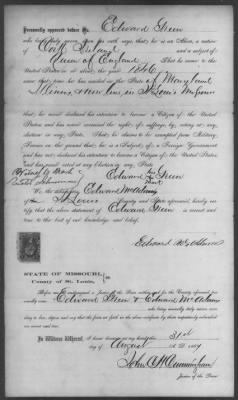 Personally appeared before Me, Edward Green
who being duly sworn, upon his oath says, that he is an Alien, a native
of North Ireland and a subject of
Queen of England That he came to the
United States in or about the year 1846
that since that time he has resided in the State of Maryland
& now lives in St Louis Missouri
that he never declared his intention to become a Citizen of the United
States and has never exercised the right of suffrage, by voting at any
election in any State. That he claims to be exempted from Military
Service on the ground that he is a Subject of a Foreign Government
and has not declared his intention to become a Citizen of the United States,
and has not voted at any election in any State.
Edward his Green
mark
We the Edward McAdams
of St Louis County and State aforesaid, hereby certify
that the above statement of Edward Green is correct and
true to the best of our knowledge and belief.
Edward McAdams
STATE OF MISSOURI,
County of St. Louis,
Before me the undersigned a Justice of the Peace within and for the County aforesaid personally came Edward Green & Edward McAdams
who being severally duly sworn, according to law, depose and say that the facts set forth in the above certificate by them respectively subscribed
are correct and true.
In Witness Whereof, I have hereunto set my hand this 31st
day of August A. D. 1864
John H Cunningham
Justice of the Peace